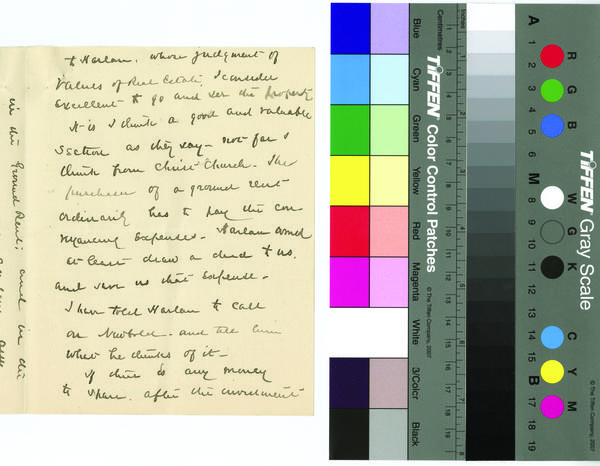 to Harlan. whose judgment of
values of Real Estate, I consider
excellent to go and see the property
It is I think a good and valuable
section as they say - not far I
think from Christ Church. The
purchaser of a ground rent
ordinarily has to pay the con
veyancing expenses - Harlan would
at least draw a deed to us.
and save us that expense -
I have told Harlan to call
on Newbold - and tell him
what he thinks of it -
If there is any money
to spare, after the investment
in the Ground Rent; and in the
Blue
Cyan
Green
Yellow
Red
Magenta
White
3/Color
Black
TIFFEN Color Control Patches
© The Tiffen Company, 2007
Centimetres
Inches
1 2 3 4 5 6 7 8 9 10 11 12 13 14 15 16 17 18 19
1 2 3 4 5 6 7 8
A 1 2 3 4 5 6 M 8 9 10 11 12 13 14 15 B 17 18 19
R G B
W G K
C Y M
TIFFEN Gray Scale
© The Tiffen Company, 2007